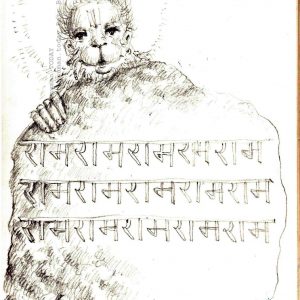 रामरामरामरमराम
रामरामरामरामराम
रामरामरामरामराम